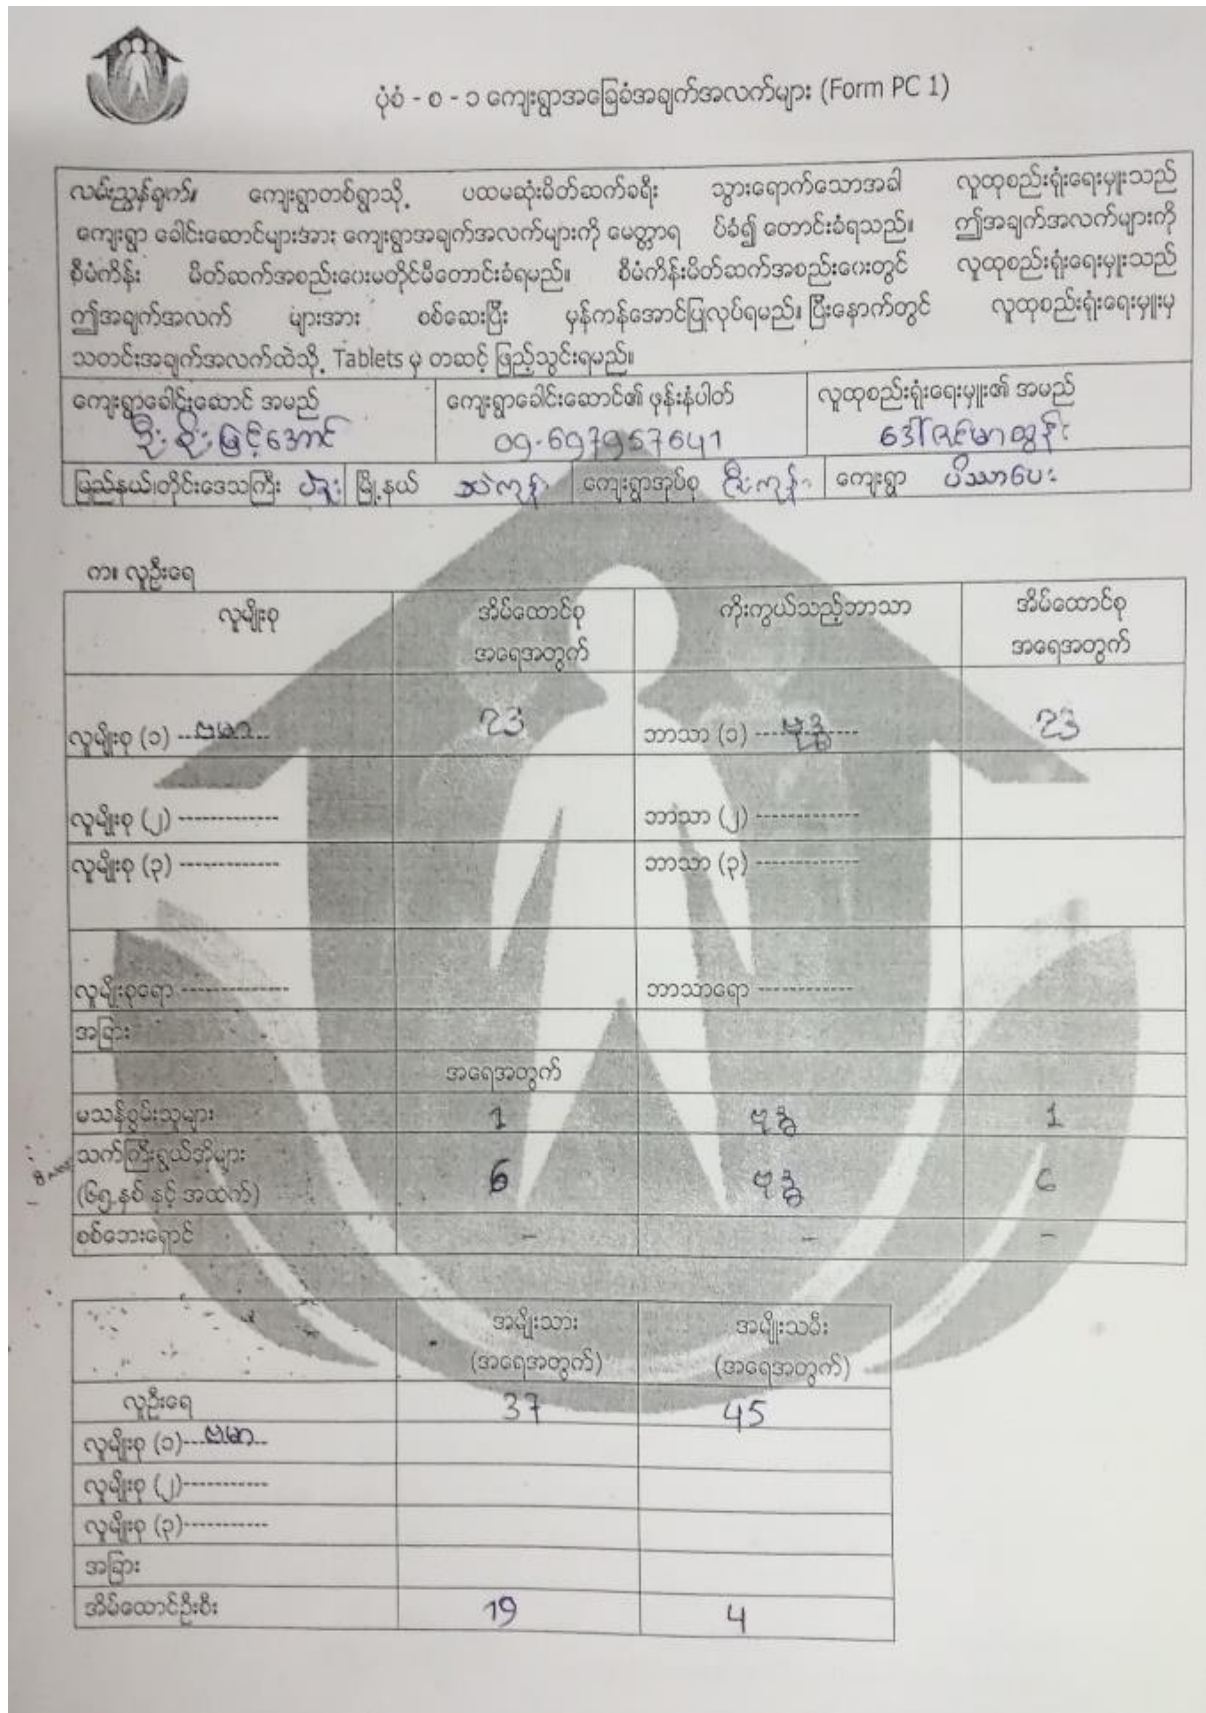 ပုံစံ - စ - ၁ ကျေးရွာအခြေခံအချက်အလက်များ (Form PC 1)
လမ်းညွှန်ချက်။ ကျေးရွာတစ်ရွာသို့ ပထမဆုံးမိတ်ဆက်ခရီး သွားရောက်သောအခါ လူထုစည်းရုံးရေးမှူးသည်
ကျေးရွာ ခေါင်းဆောင်များအား ကျေးရွာအချက်အလက်များကို မေတ္တာရ ပ်ခံ၍ တောင်းခံရသည်။ ဤအချက်အလက်များကို
စီမံကိန်း မိတ်ဆက်အစည်းဝေးမတိုင်မီတောင်းခံရမည်။ စီမံကိန်းမိတ်ဆက်အစည်းဝေးတွင် လူထုစည်းရုံးရေးမှူးသည်
ဤအချက်အလက် များအား စစ်ဆေးပြီး မှန်ကန်အောင်ပြုလုပ်ရမည်။ ပြီးနောက်တွင် လူထုစည်းရုံးရေးမှူးမှ
သတင်းအချက်အလက်ထဲသို့ Tablets မှ တဆင့် ဖြည့်သွင်းရမည်။
ကျေးရွာခေါင်းဆောင် အမည် ကျေးရွာခေါင်းဆောင်၏ ဖုန်းနံပါတ် လူထုစည်းရုံးရေးမှူး၏ အမည်
ဦးစိုးမြင့်အောင် 09-697957641 ဒေါ်ခင်မာထွန်း
ပြည်နယ်/တိုင်းဒေသကြီး ပဲခူး မြို့နယ် သဲကုန်း ကျေးရွာအုပ်စု ဇီးကုန်း ကျေးရွာ ပိဿာပေး
က။ လူဦးရေ
လူမျိုးစု အိမ်ထောင်စု ကိုးကွယ်သည့်ဘာသာ အိမ်ထောင်စု
အရေအတွက် အရေအတွက်
လူမျိုးစု (၁) ...ဗမာ... 23 ဘာသာ (၁) ----ဗုဒ္ဓ---- 23
လူမျိုးစု (၂) ------------- ဘာသာ (၂) -------------
လူမျိုးစု (၃) ------------- ဘာသာ (၃) -------------
လူမျိုးစုရော -------------- ဘာသာရော ------------
အခြား
အရေအတွက်
မသန်စွမ်းသူများ 1 ဗုဒ္ဓ 1
သက်ကြီးရွယ်အိုများ
(၆၅ နှစ် နှင့် အထက်) 6 ဗုဒ္ဓ 6
စစ်ဘေးရှောင် - - -
အမျိုးသား အမျိုးသမီး
(အရေအတွက်) (အရေအတွက်)
လူဦးရေ 37 45
လူမျိုးစု (၁)---ဗမာ--
လူမျိုးစု (၂)-----------
လူမျိုးစု (၃)-----------
အခြား
အိမ်ထောင်ဦးစီး 19 4